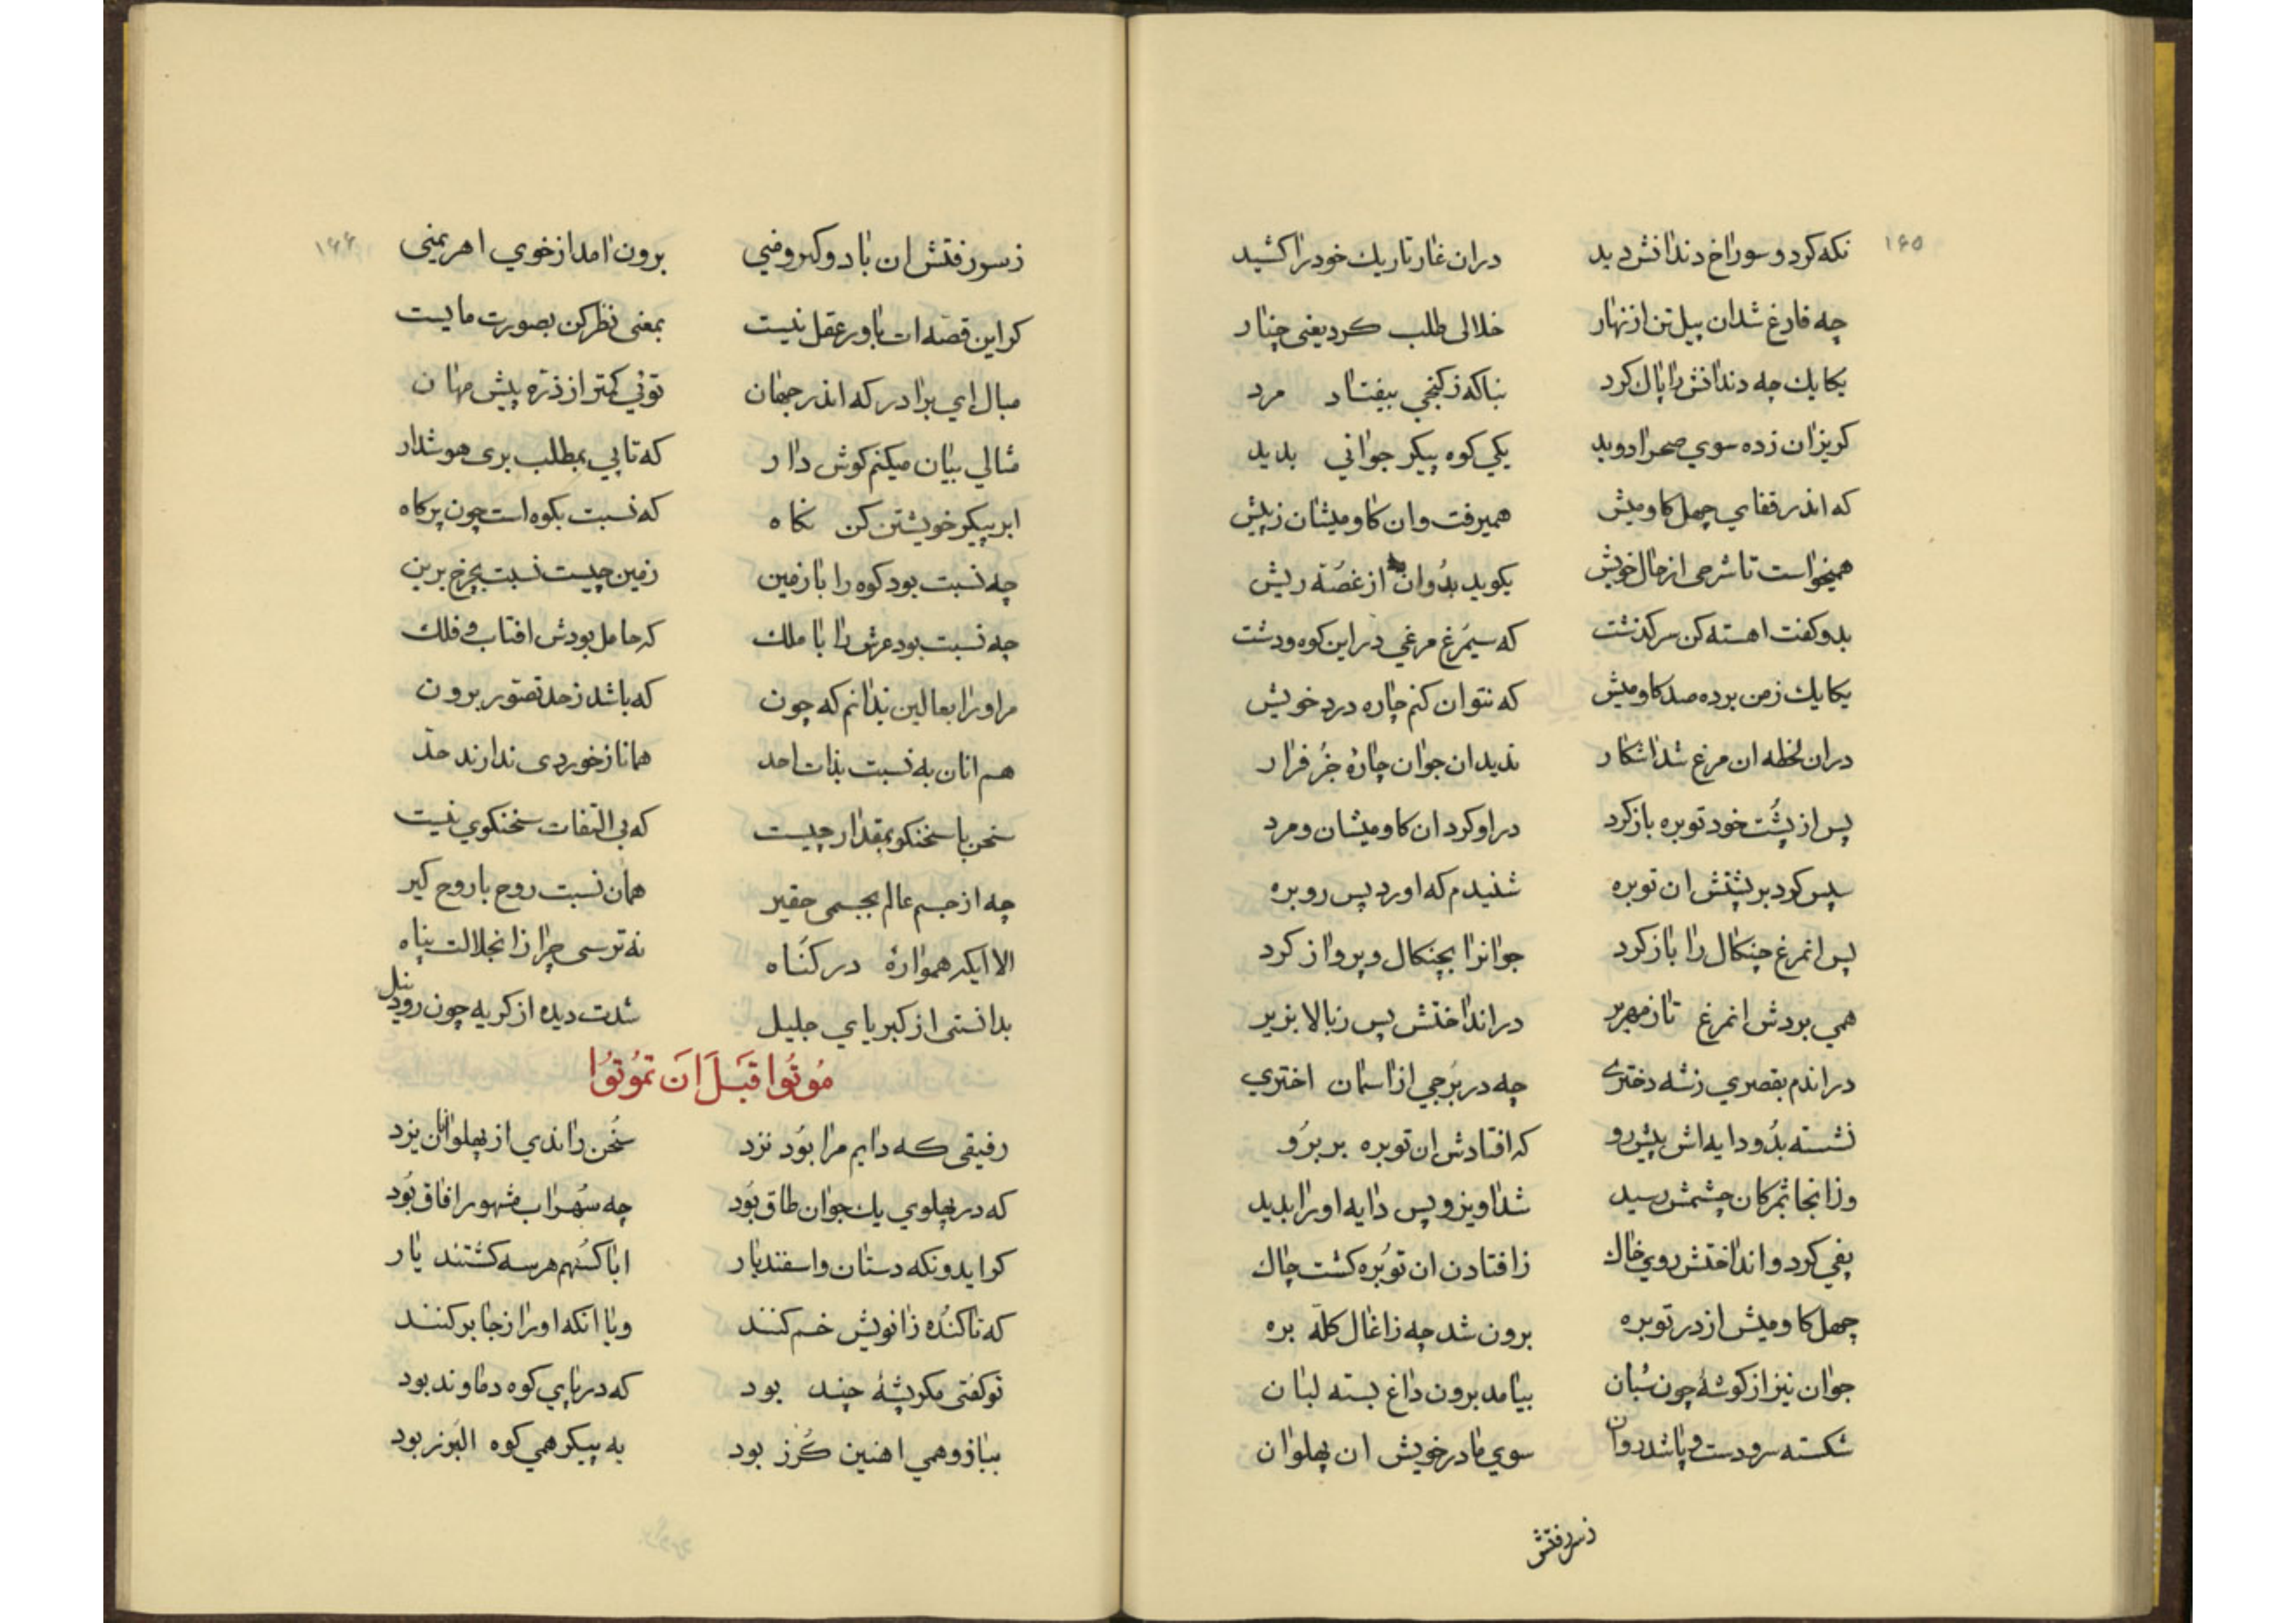 ۱۶۵
نکه کرد و سوراخ دندانش دید دران غار تاریك خود را کشید
چه فارغ شد ان پیل تن از نهار خلالی طلب کرد یعنی چنار
یکایك چه دندانش را پاك کرد بناکه ز کنجی بیفتاد مرد
کریزان زده سوي صحرا دوید یکي کوه پیکر جوانی بدید
که اندر قفاي چهل کاومیش همیرفت وان کاومیشان ز پیش
همیخواست تا شرحی از حال خویش بکوید بدُوان از غصّه ریش
بدو کفت اهسته کن سرکذشت که سیمُرغ مرغي در این کوه ودشت
یکایك ز من برده صد کاومیش که نتوان کنم چاره درد خویش
دران لحظه ان مرغ شد اشکار ندید ان جوان چارۀ جُز فرار
پس از پُشت خود توبره باز کرد دراو کرد ان کاومیشان ومرد
سپس کود بر پشتش ان توبره شنیدم که اورد پس رو بره
پس انمرغ چنکال را باز کرد جوانرا بچنکال و پرواز کرد
همي بردش انمرغ تا زمهریر در انداختش پس ز بالا بزیر
دراندم بقصري زشه دخترے چه در بُرجي از اسمان اختري
نشسته بدُو دایه اش پیش رو که افتادش ان توبره بر بروُ
وزانجا ثمرکان چشمش رسید شد اویز و پس دایه اورا بدید
پفي کرد و انداختش روي خاك ز افتادن ان توُبره کشت چاك
چهل کاومیش از در توبره برون شد چه زاغال کلّه بره
جوان نیز از کوشۀ چون شبان بیامد برون داغ بسته لبان
شکسته سر و دست و پا شد روان سوي مادر خویش ان پهلوان
ز سر رفتش
۱۶۶
ز سر رفتش ان باد و کبر ومني برون امد از خوي اهریمنی
کر این قصّه ات باور عقل نیست بمعنی نظر کن بصورت مایست
مبال اي برادر که اندر جهان توئي کمتر از ذرّه پیش مهان
مثالي بیان میکنم کوش دار که تا پي بمطلب بری هوشدار
ابر پیکر خویشتن کن نکاه که نسبت بکوه است چون پرکاه
چه نسبت بود کوه را با زمین زمین چیست نسبت بچرخ برین
چه نسبت بود عرش را با ملك که حامل بودش افتاب و فلك
مر اورا بعالین ندانم که چون که باشد ز حد تصّور برون
هم انان به نسبت بذات احد همانا ز خوردی ندارند حدّ
سخن با سخنکو بمقدار چیست که بی التفات سخنکوي نیست
چه از جسم عالم بجسمی حقیر همان نسبت روح با روح کیر
الا ایکه هموارۀ در کناه نه ترسی چرا زانجلالت پناه
بدانستی از کبریاي جلیل شدت دیده از کریه چون رود نیل
مُوتُوا قَبلَ اَن تمُوتُوا
رفیقی که دایم مرا بوُد نزد سُخن راندي از پهلوانان یزد
که در پهلوي یك جوان طاق بوُد چه سُهراب مشهور افاق بوُد
کو ایدونکه دستان و اسفندیار ابا کستهم هر سه کشتند یار
که تا کنُده زانویش خم کنند ویا انکه اورا ز جا بر کنند
تو کفتی مکر پشۀ چند بود که در پاي کوه دماوند بود
ببازو همي اهنین کُرز بود به پیکر همي کوه البُرز بود